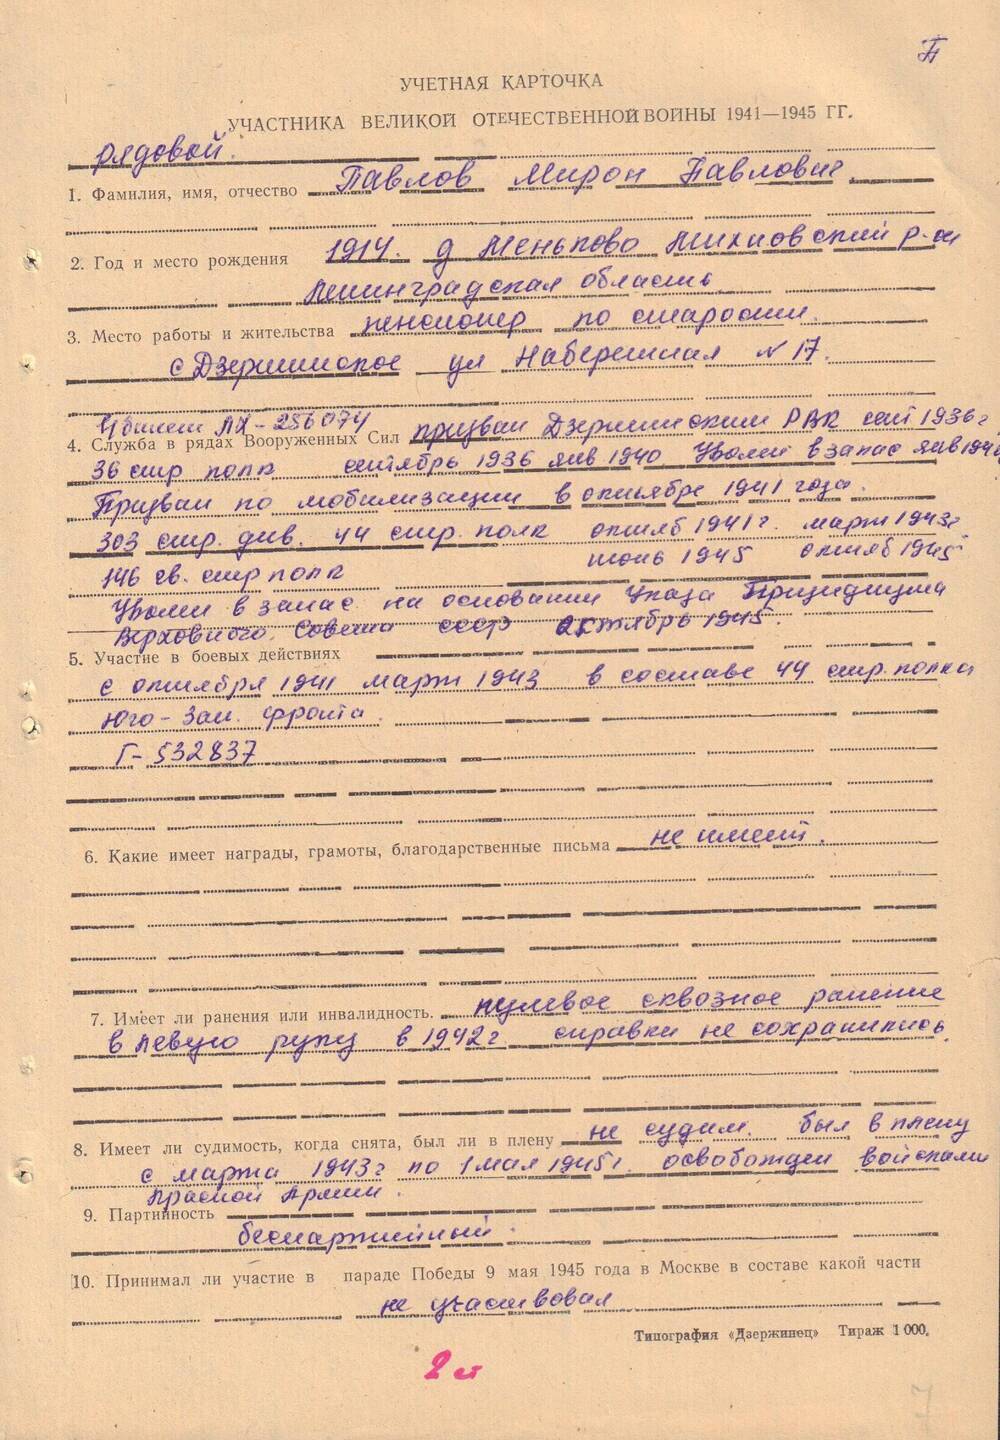 П
УЧЕТНАЯ КАРТОЧКА
УЧАСТНИКА ВЕЛИКОЙ ОТЕЧЕСТВЕННОЙ ВОЙНЫ 1941—1945 ГГ.
рядовой.
1. Фамилия, имя, отчество Павлов Мирон Павлович.
2. Год и место рождения 1914. д Меньково р-он
Ленинградская область
3. Место работы и жительства пенсионер по старости.
с Дзержинское ул Набережная № 17.
Ч билет ЛХ - 286074
4. Служба в рядах Вооруженных Сил призван Дзержинским РВК сент 1936г
36 стр полк сентябрь 1936 янв 1940 Уволен в запас янв 1940
Призван по мобилизации в октябре 1941 года.
303 стр. див. 44 стр. полк октяб 1941г. март 1943г
146 св. стр полк июнь 1945 октяб 1945
Уволен в запас на основании Указа Призидиума
Верховного Совета СССР октябрь 1945.
5. Участие в боевых действиях
с октября 1941 март 1943 в составе 44 стр. полка
Юго-Зап. фронта.
Г-532837
6. Какие имеет награды, грамоты, благодарственные письма не имеет.
7. Имеет ли ранения или инвалидность. пулевое сквозное ранение
в левую руку в 1942г справки не сохранились.
8. Имеет ли судимость, когда снята, был ли в плену не судим. был в плену
с марта 1943г по 1 мая 1945г. освобожден войсками
Красной Армии.
9. Партийность
беспартийный.
10. Принимал ли участие в параде Победы 9 мая 1945 года в Москве в составе какой части
не участвовал
Типография «Дзержинец» Тираж 1000.
2 ст
7